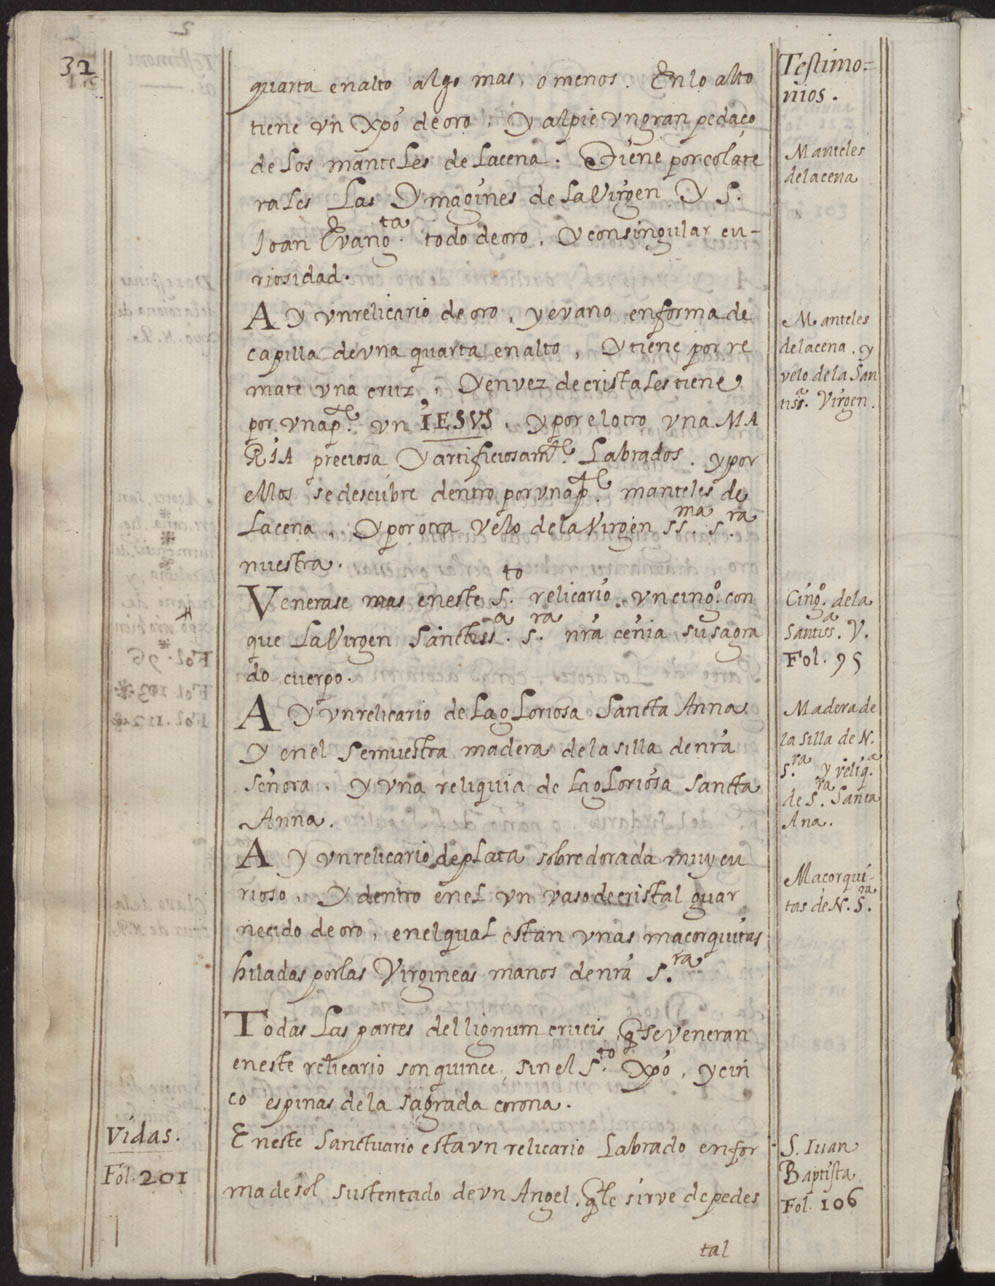 32
quarta en alto algo mas, o menos. En lo alto
tiene un Xpõ de oro, y al pie un gran pedaço
de los manteles de la cena. Tiene por colate
rales las Ymagines de la Virgen Y S.
Joan Evang.ta todo de oro, y con singular cu-
riosidad.
Ay un relicario de oro, y evano en forma de
capilla de una quarta en alto, y tiene por re
mate una cruz, y en vez de cristales tiene
por una p.te un IESVS, y por el otro una MA
RIA preciosa y artificiosam.te Labrados. y por
ellos se descubre dentro por una p.te manteles de
la cena, y por otra Velo de la Virgen ss.ma s.ra
nuestra.
Venerase mas en este S.to relicario un cing.o con
que la Virgen Sanctiss.a S.ra nrã cenia su sagra
do cuerpo.
Ay un relicario de la gloriosa Sancta Anna
y en el se muestra madera de la silla de nrã
Señora. y una reliquia de la gloriosa Sancta
Anna.
Ay un relicario de plata sobredorada muy cu
rioso, y dentro en el un vaso de cristal guar
necido de oro, en el qual estan unas macorquitas
hiladas por las Virgineas manos de nrã S.ra
Todas las partes del lignum crucis, q̃ se veneran
en este relicario son quince sin el S.to Xpõ, y cin
co espinas de la sagrada corona.
En este Sanctuario esta un relicario Labrado en for
ma de sol sustentado de un Angel, q̃ le sirve de pedes
tal
Testimo=
nios.
Manteles
de la cena
Manteles
de la cena, y
velo de la San
tiss.a Virgen.
Cing.o de la
Santiss.a V.
Fol. 95
Madera de
la silla de N.
S.ra y reliq.a
de S.ra Santa
Ana.
Macorqui-
tas de N. S.ra
S. Iuan
Baptista
Fol. 106
Vidas.
Fol. 201